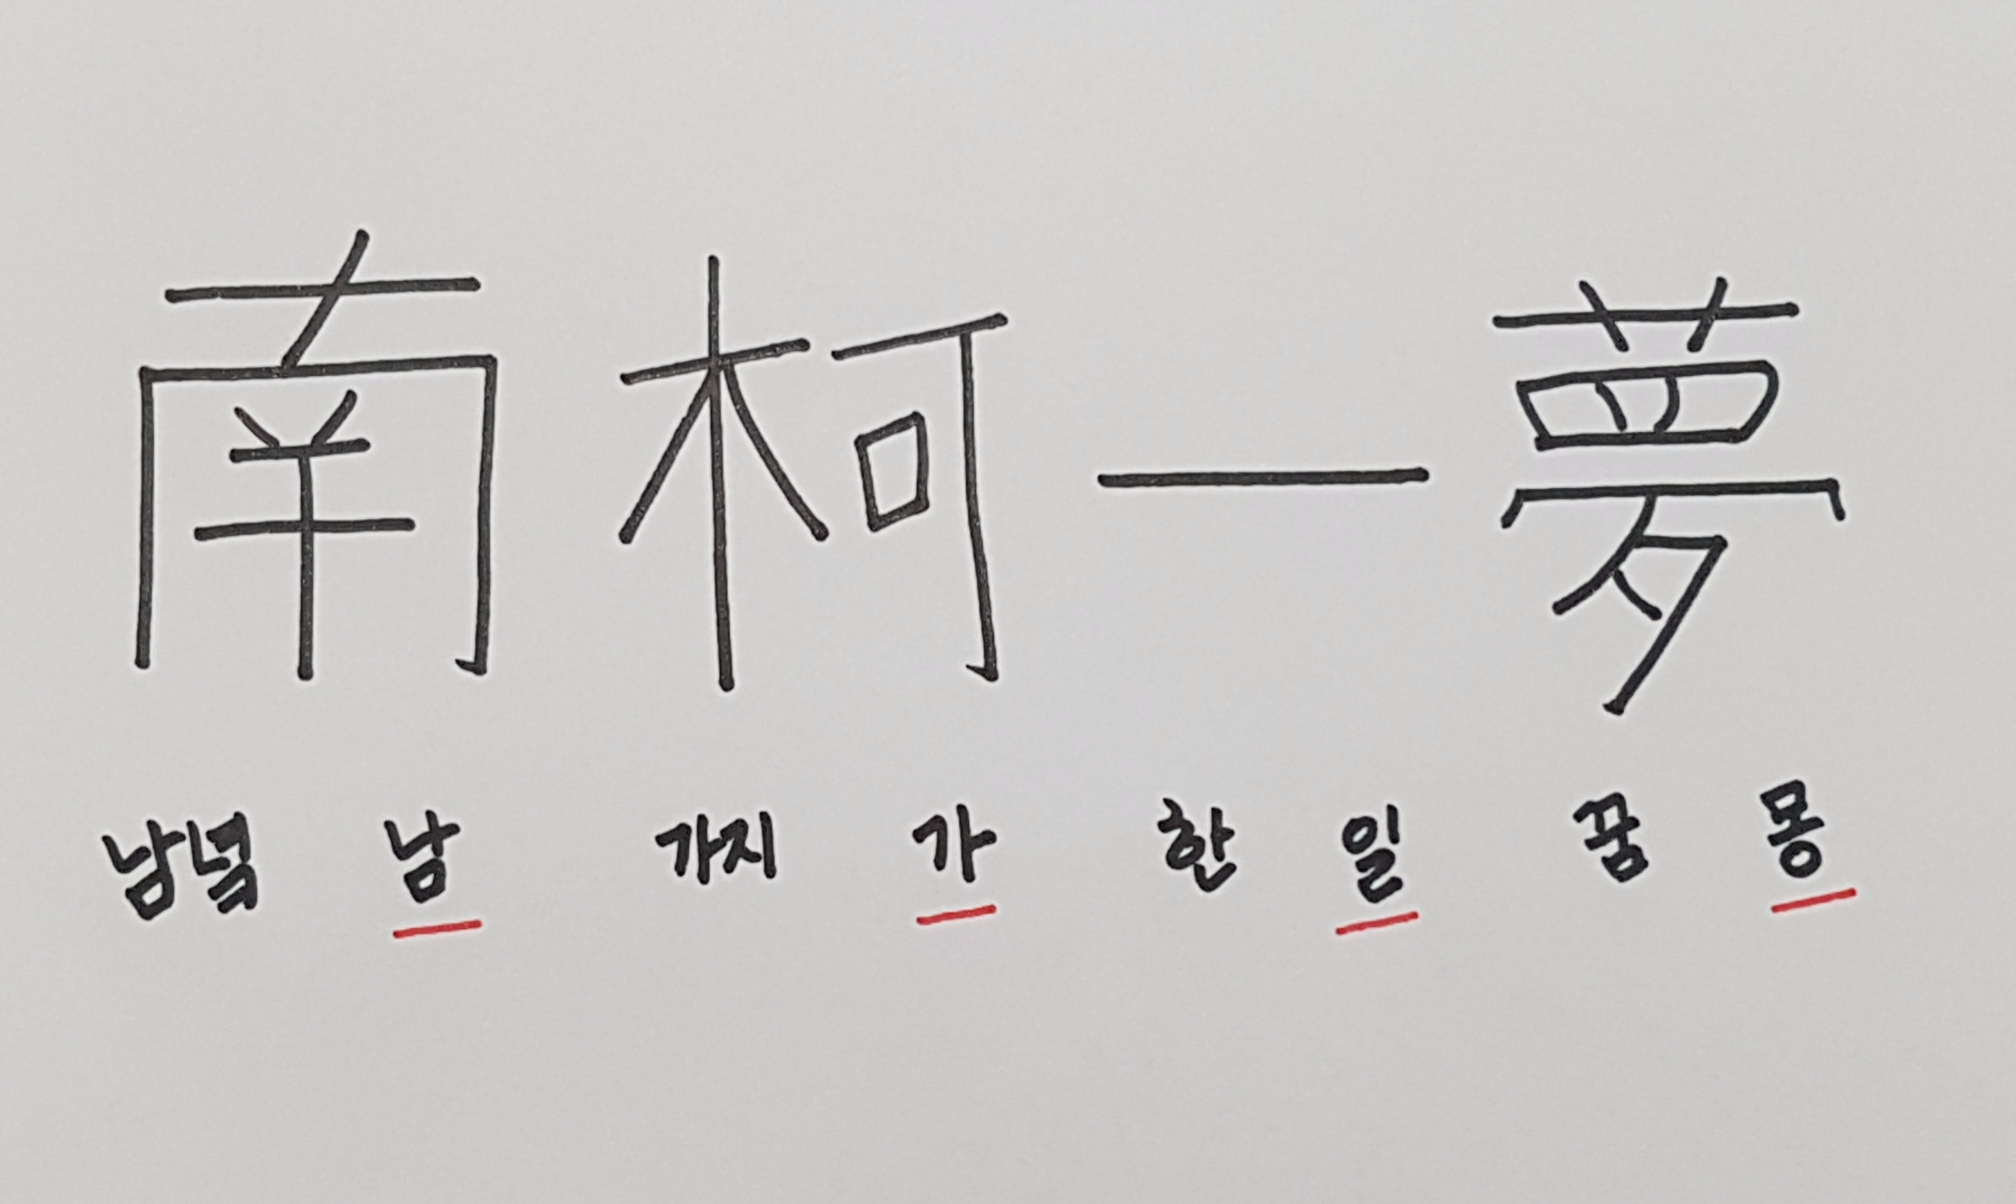 南柯一夢
남녘 남 가지 가 한 일 꿈 몽